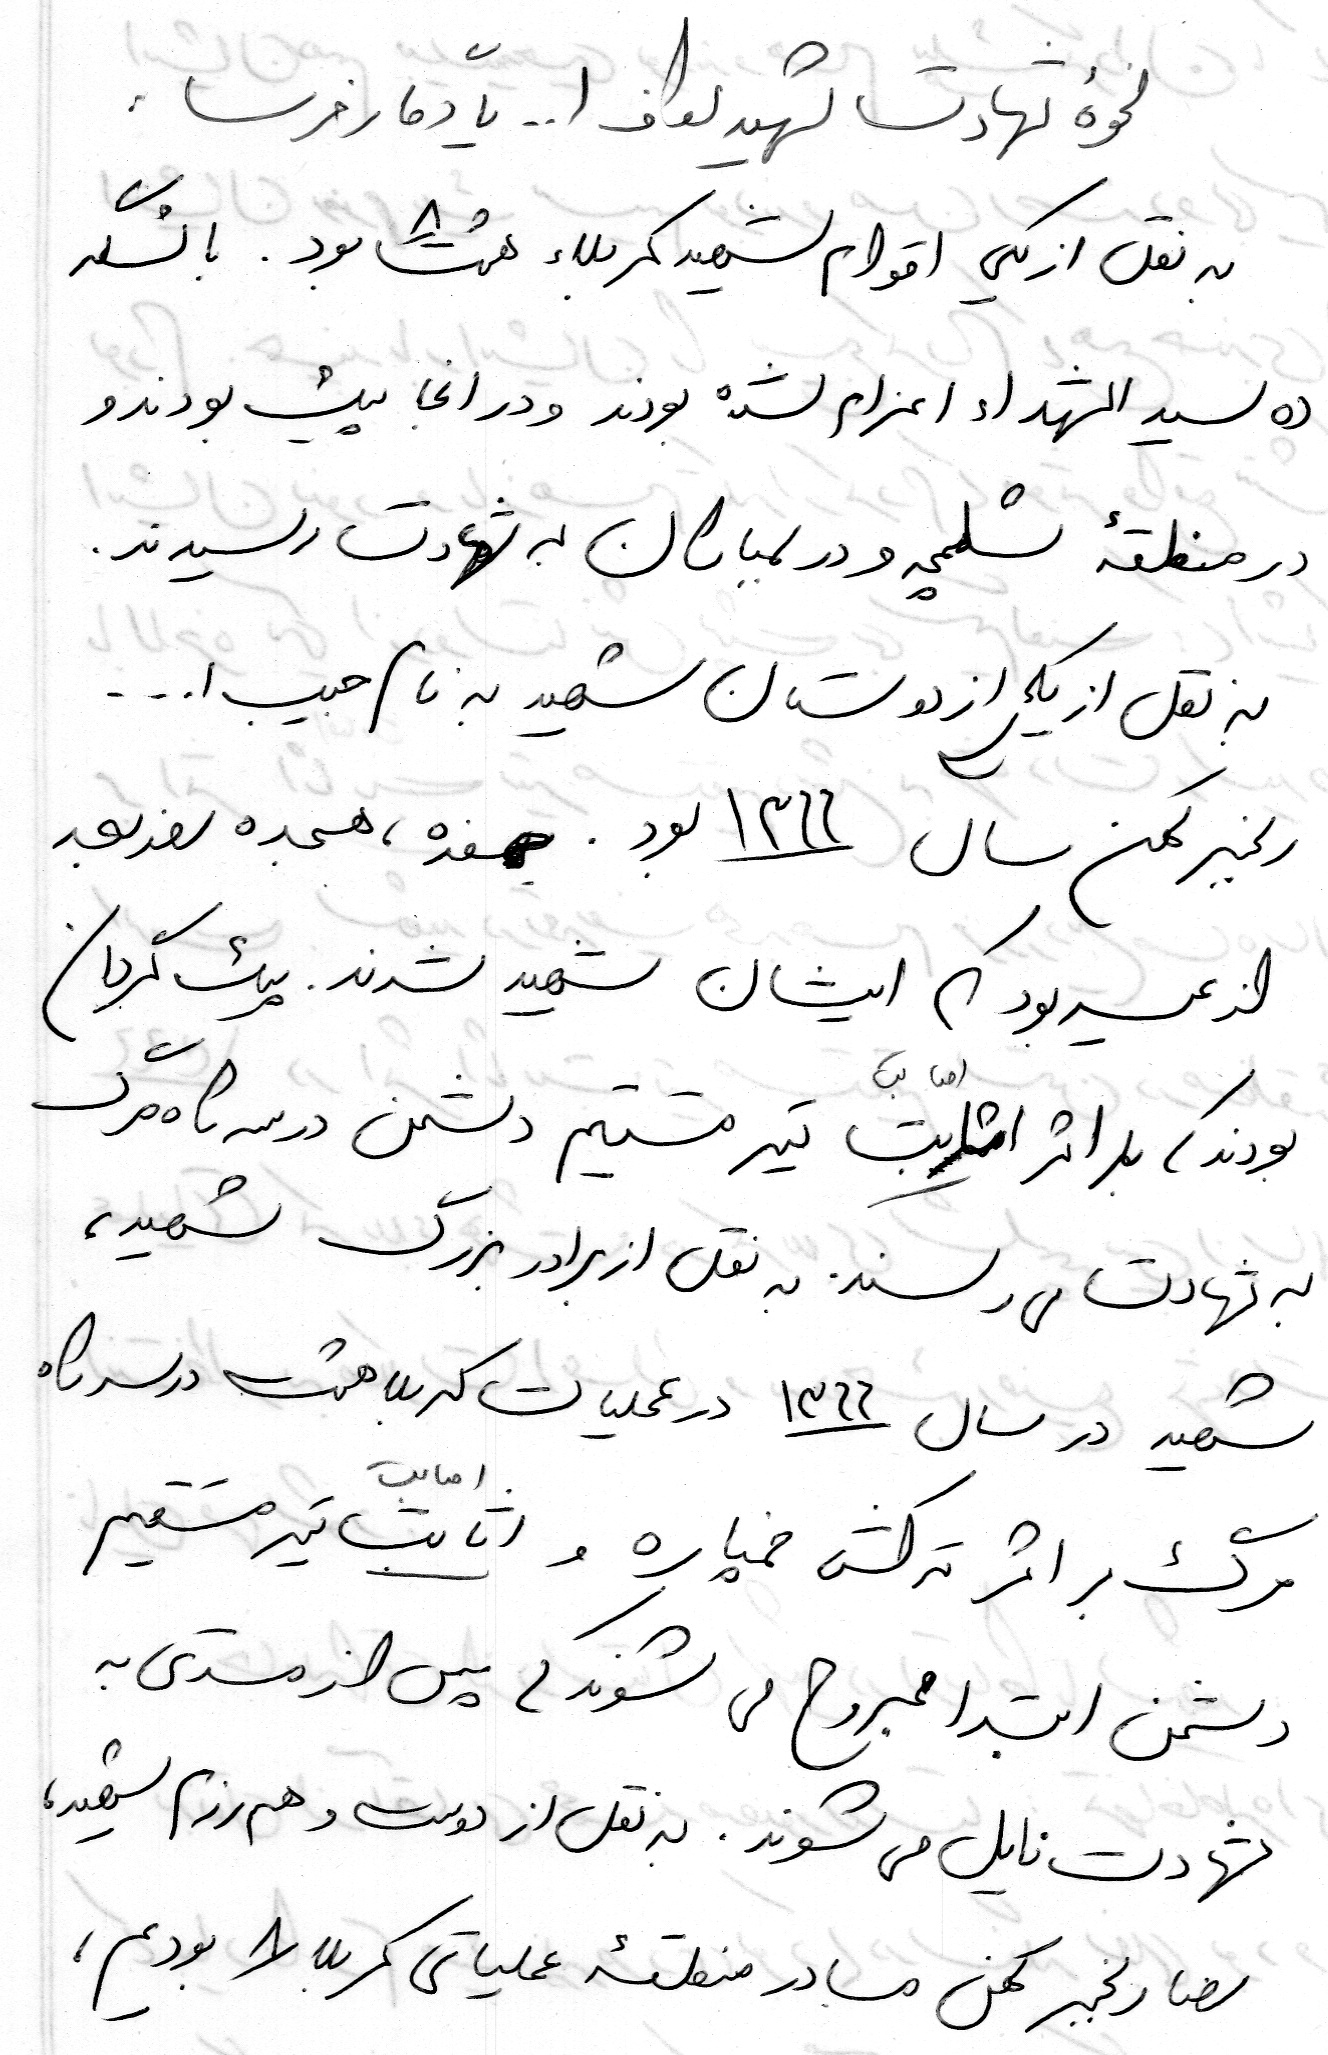 نحوهٔ شهادت شهید لطف ا... یادگار خرسا،
به نقل از یکی اقوام شهید کربلاء هشت ۸ بود. با لشکر
ده سید الشهداء اعزام شده بودند و در انجا پیک بودند و
در منطقهٔ شلمچه و در لبیاران به شهادت رسیدند.
به نقل از یکی از دوستان شهید به نام حبیب ا...
رنجبر کهن سال ۱۳۶۶ بود. هفده، هجده روز بعد
از عید بود که ایشان شهید شدند. پیک گردان
بودند که بر اثر اصابت تیر مستقیم دشمن در سه راه مرگ
به شهادت می رسند. به نقل از برادر بزرگ شهید،
شهید در سال ۱۳۶۶ در عملیات کربلا هشت در سه راه
مرگ بر اثر ترکش خمپاره و اثابت اصابت تیر مستقیم
دشمن ابتدا مجروح می شوند که پس از مدتی به
شهادت نایل می شوند. به نقل از دوست و هم رزم شهید،
رضا رنجبر کهن ما در منطقهٔ عملیاتی کربلا ۸ بودیم،